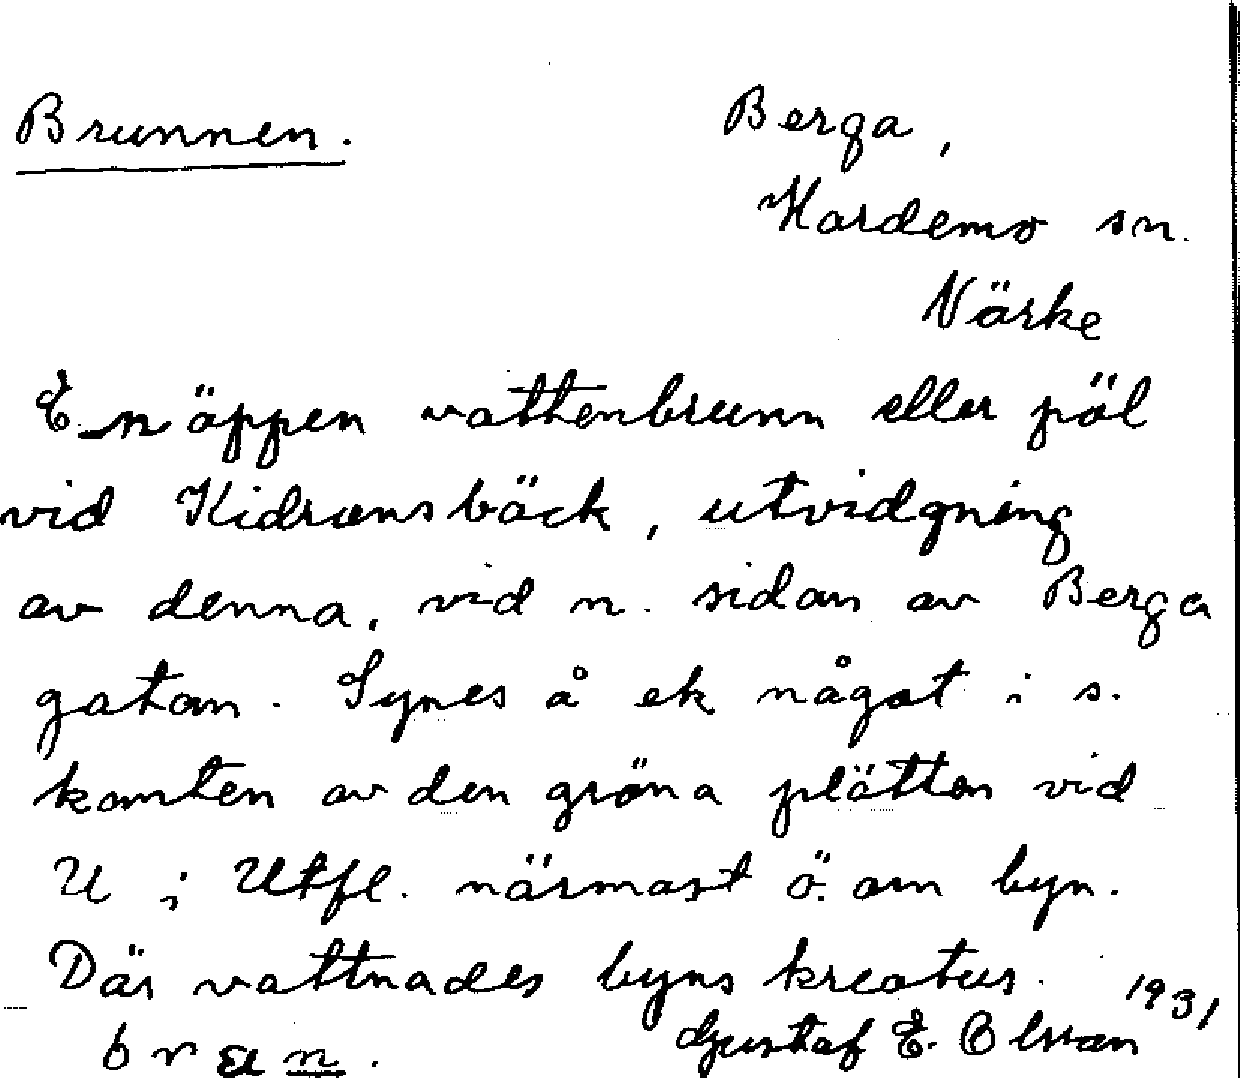 Brunnen.
Berga,
Hardemo sn.
Närke
En öppen vattenbrunn eller pöl
vid Kidronsbäck, utvidgning
av denna, vid n. sidan av Berga
gatan. Synes å ek något i s.
kanten av den gröna plätten vid
U i Utfl. närmast ö. om byn.
Där vattnades byns kreatur.
1931
Gustaf E. Olsson